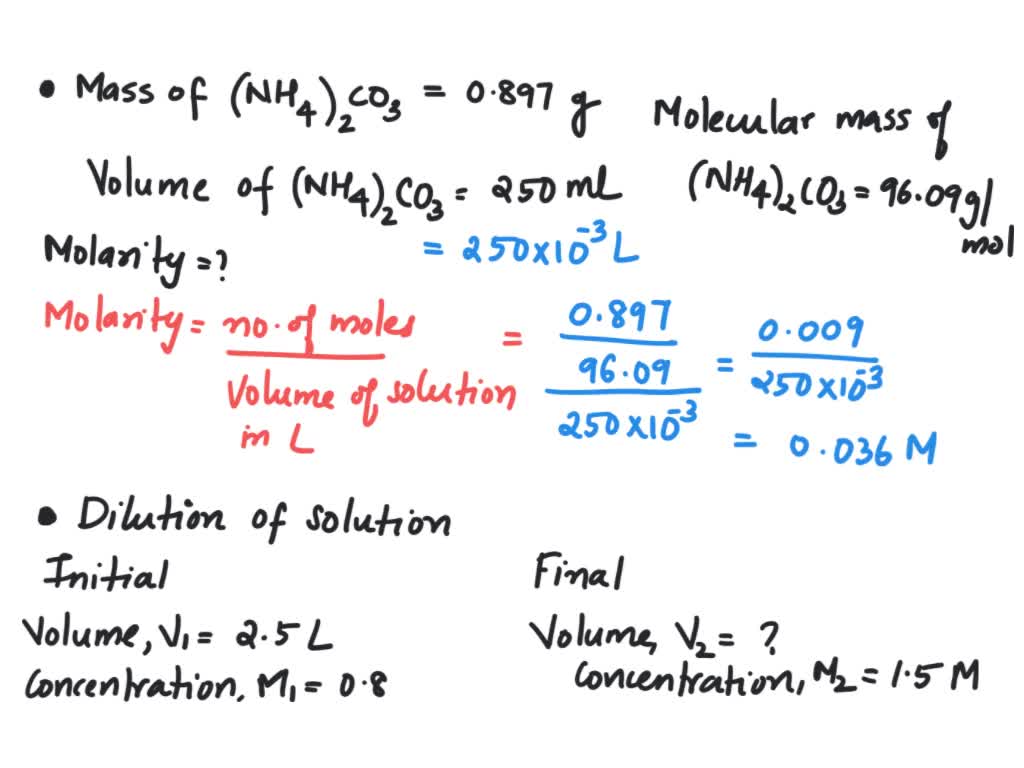 • Mass of (NH₄)₂CO₃ = 0.897 g
Molecular mass of
(NH₄)₂CO₃ = 96.09 g/
mol
Volume of (NH₄)₂CO₃ = 250 mL
= 250×10⁻³ L
Molarity = ?
Molarity = no. of moles / Volume of solution in L = (0.897 / 96.09) / 250×10⁻³ = 0.009 / 250×10⁻³
= 0.036 M
• Dilution of solution
Initial
Volume, V₁ = 2.5 L
Concentration, M₁ = 0.8
Final
Volume, V₂ = ?
Concentration, M₂ = 1.5 M